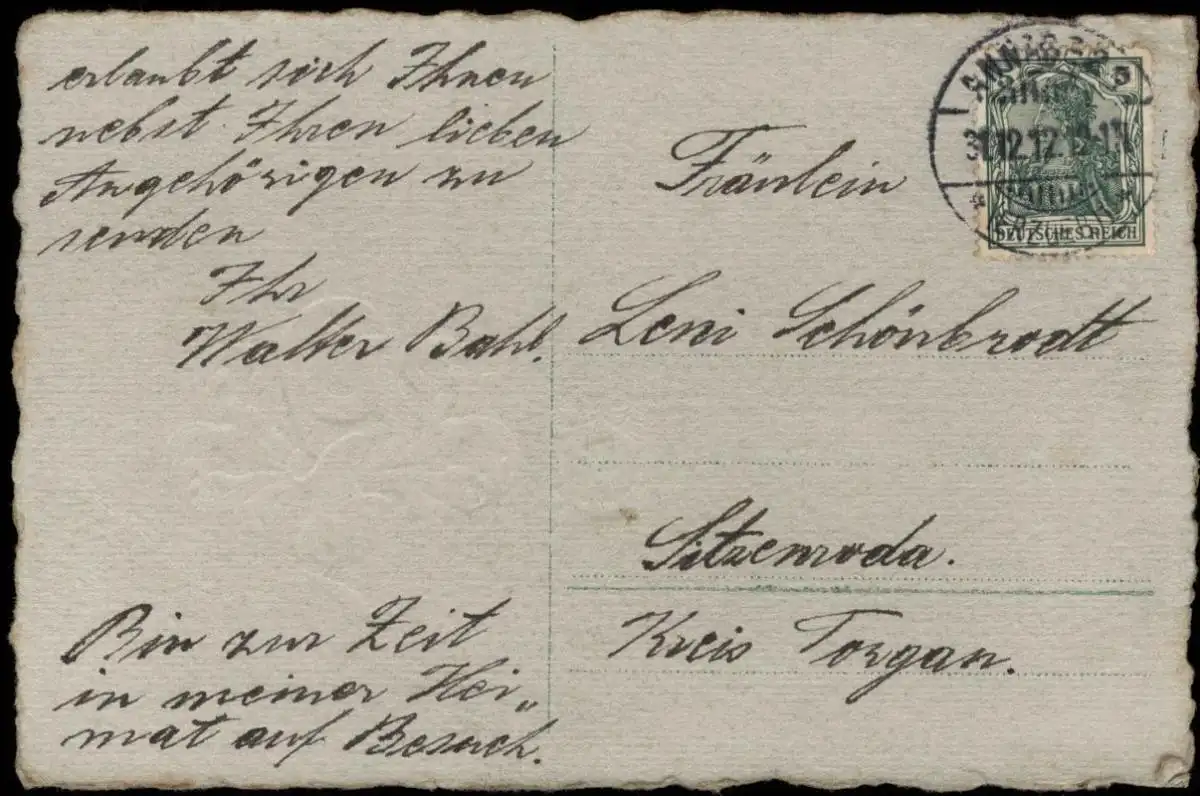 erlaubt sich Ihnen
nebst Ihren lieben
Angehörigen zu
senden
Ihr
Walter Bahl.
Bin zur Zeit
in meiner Hei„
mat auf Besuch.
Fräulein
Leni Schönbrodt
Sitzenroda.
Kreis Torgau.
5
DEUTSCHES REICH
31.12.12.